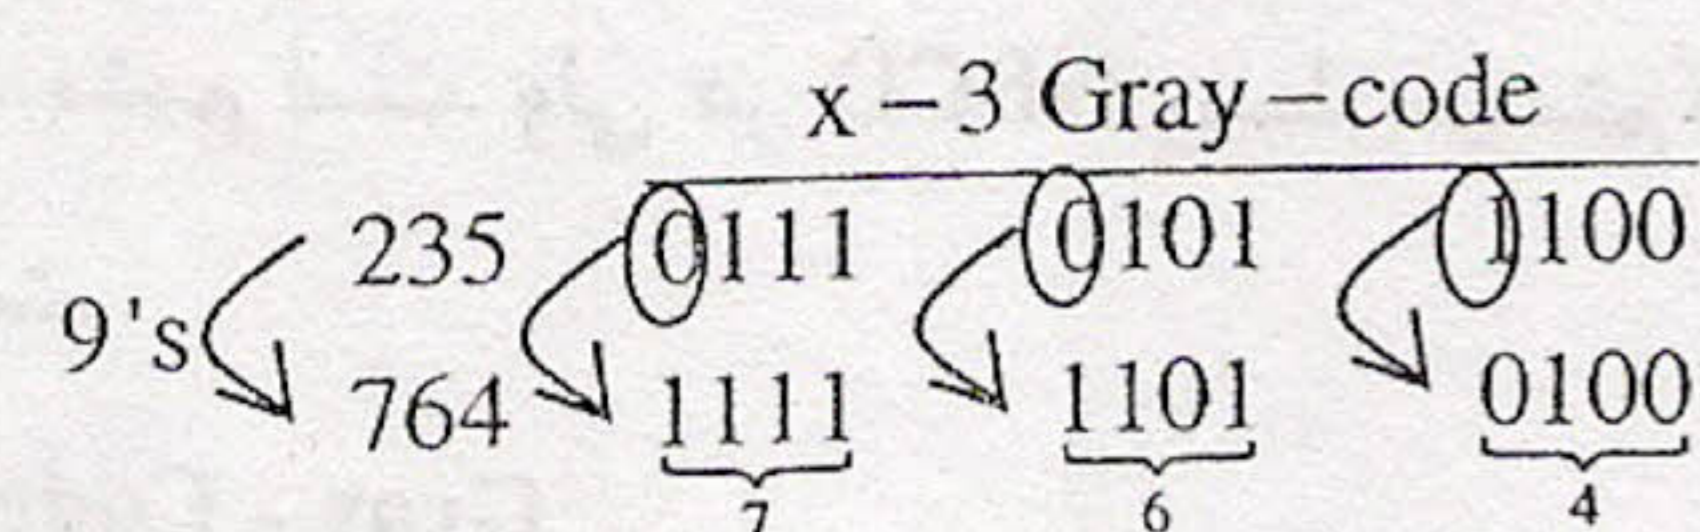 x – 3 Gray – code
235 0111 0101 1100
9's
764 1111 1101 0100
7 6 4